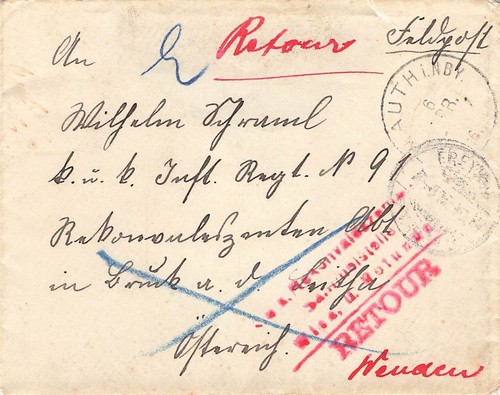 An
Retour
Feldpost
Wilhelm Schraml
k. u. k. Inft. Regt. N 91
Rekonvaleszenten Abt
in Bruck a. d. Leitha
Östereich.
RETOUR
Wenden